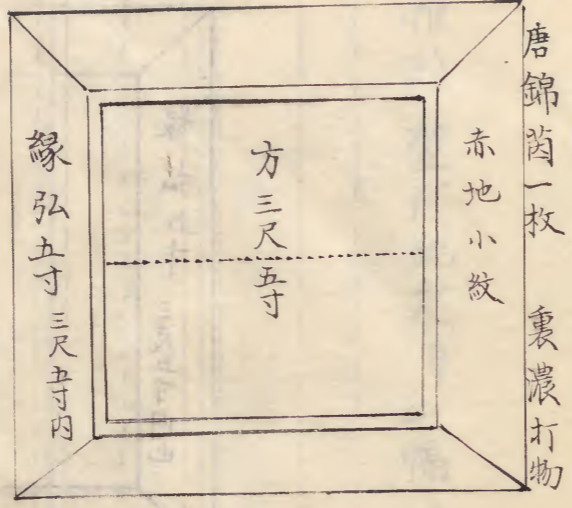 唐錦茵一枚　裏濃打物
赤地小紋
方三尺五寸
縁弘五寸 三尺五寸内